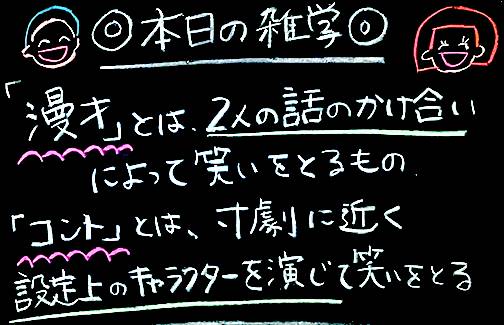 ◎本日の雑学◎
「漫才」とは、2人の話のかけ合い
によって笑いをとるもの.
「コント」とは、寸劇に近く
設定上のキャラクターを演じて笑いをとる